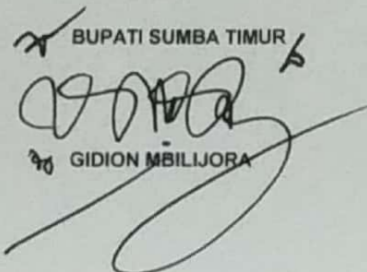 BUPATI SUMBA TIMUR
GIDION MBILIJORA